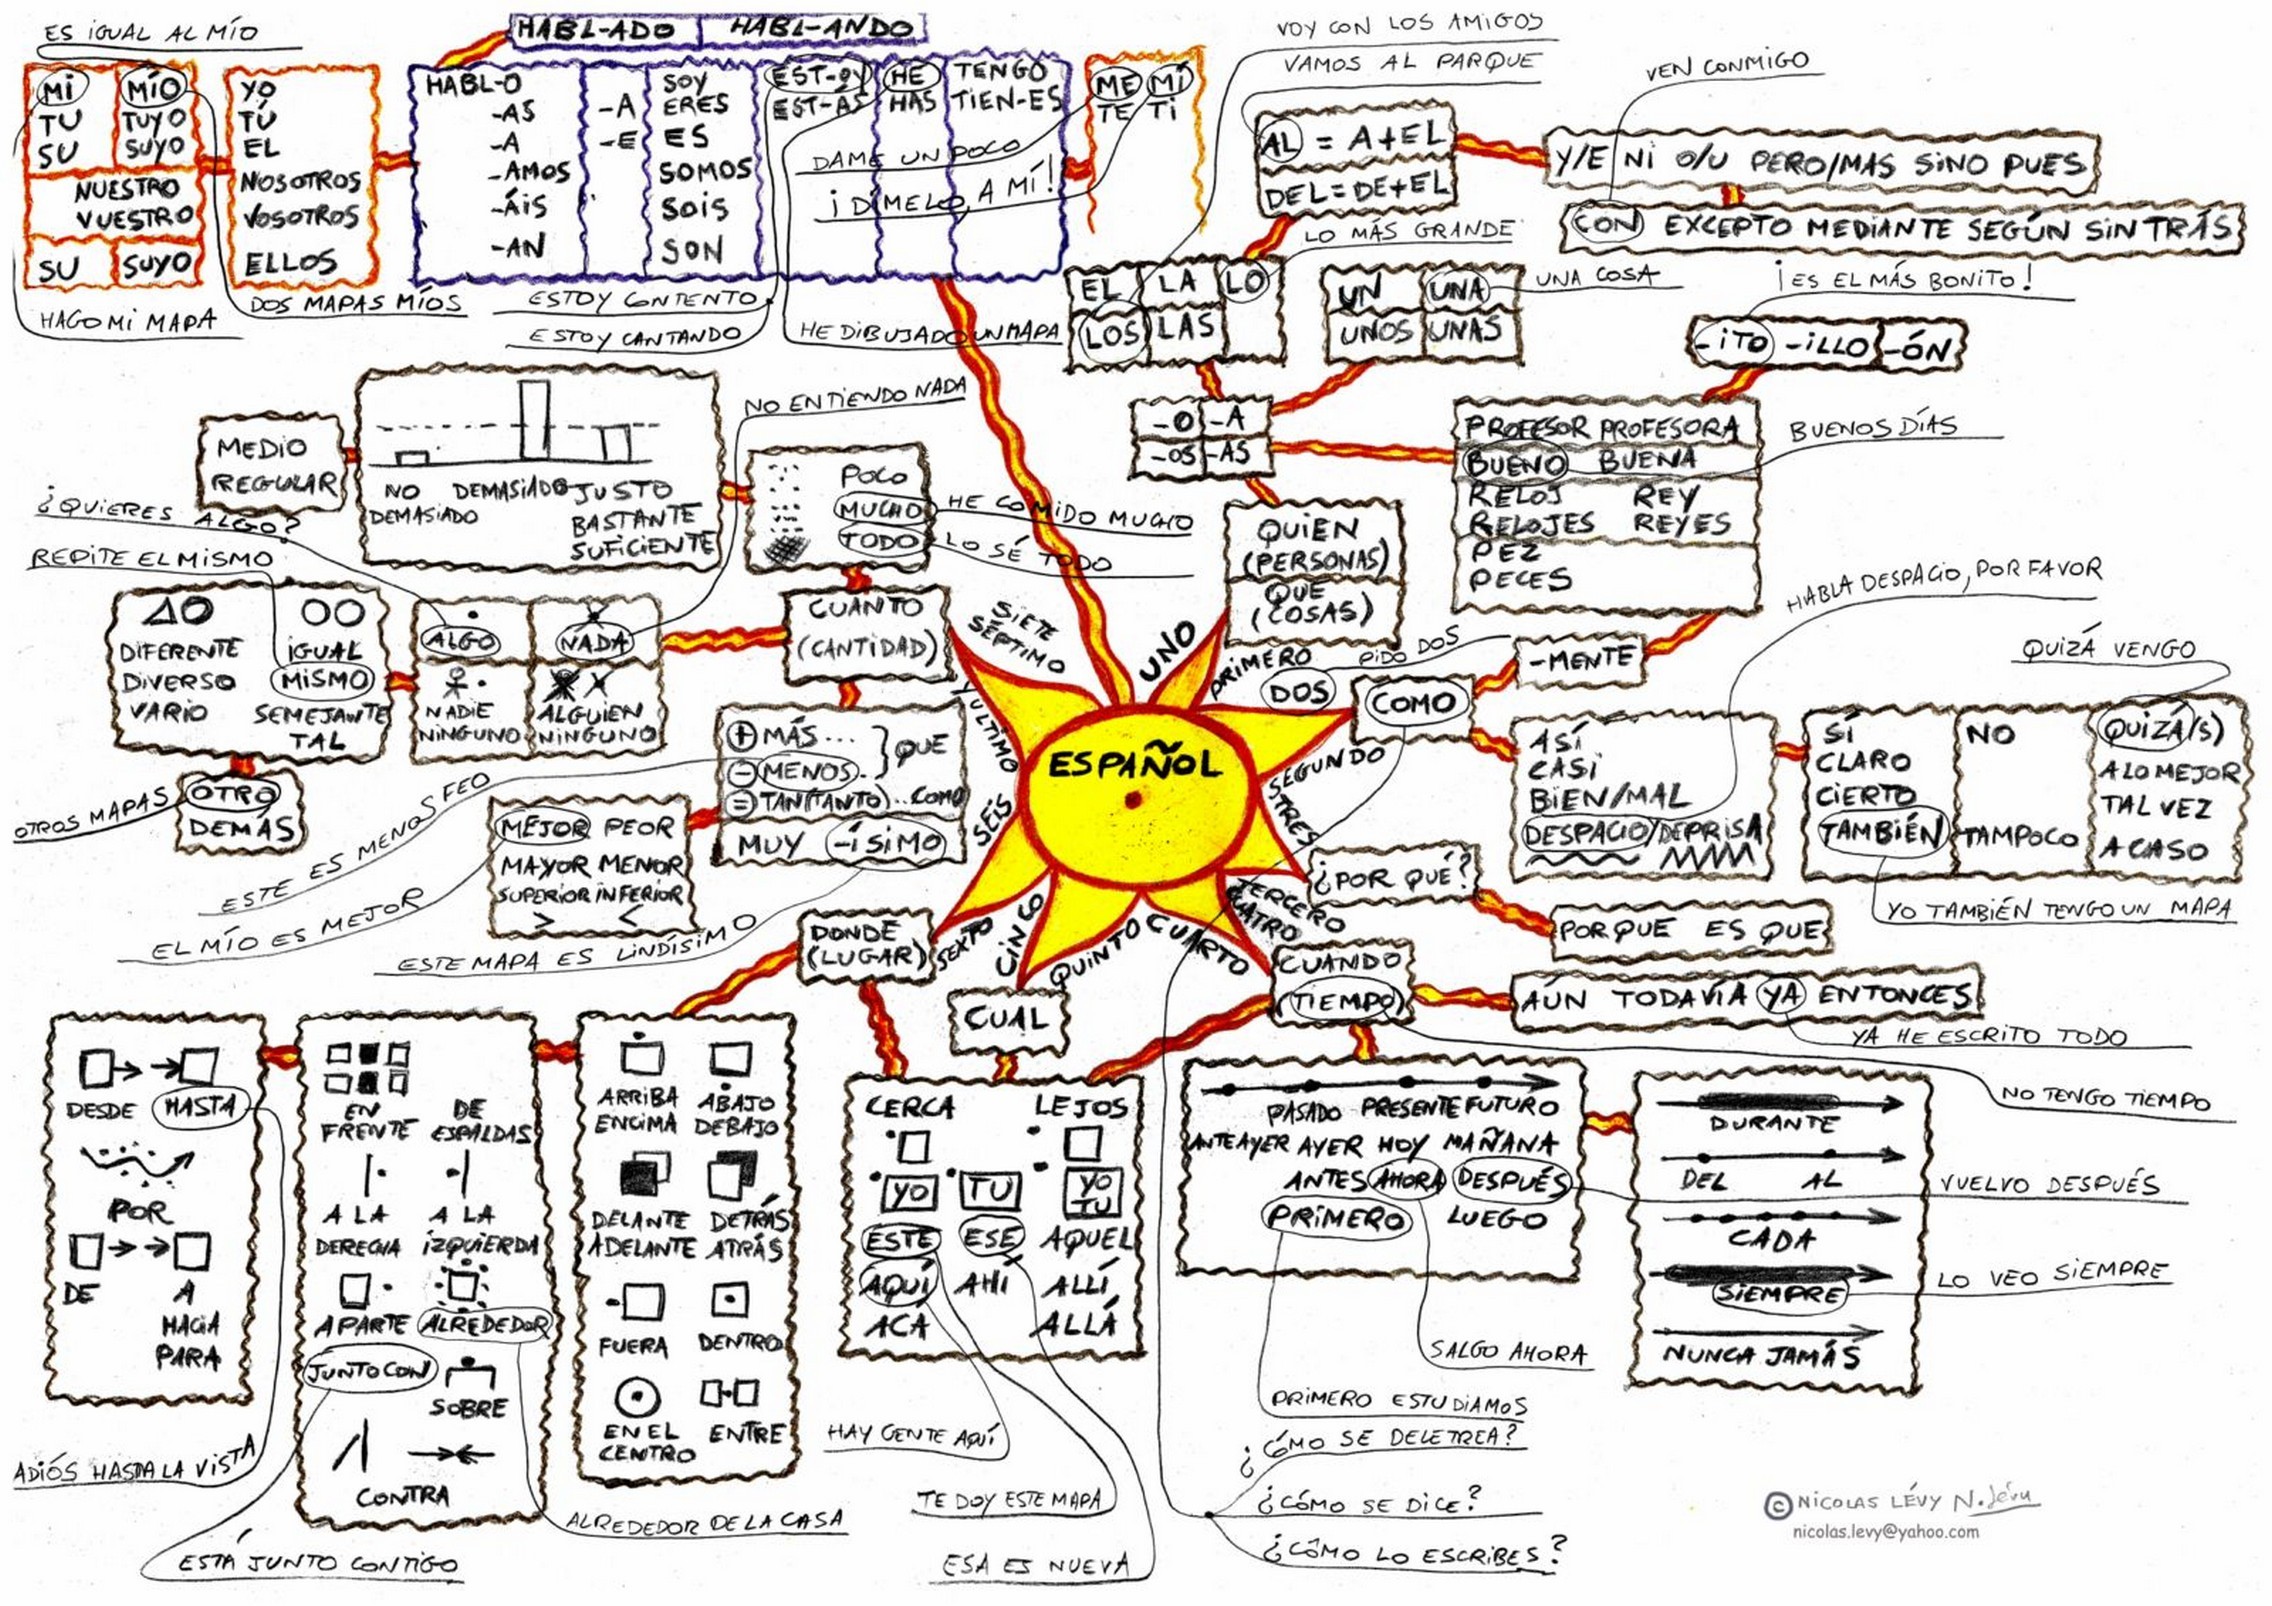 ES IGUAL AL MÍO
MI MÍO
TU TUYO
SU SUYO
NUESTRO
VUESTRO
SU SUYO
HAGO MI MAPA
DOS MAPAS MÍOS
YO
TÚ
EL
NOSOTROS
VOSOTROS
ELLOS
HABL-ADO HABL-ANDO
HABL-O
-AS
-A
-AMOS
-ÁIS
-AN
-A
-E
SOY
ERES
ES
SOMOS
SOIS
SON
EST-OY
EST-ÁS
HE
HAS
TENGO
TIEN-ES
ME MÍ
TE TI
DAME UN POCO
¡DÍMELO, A MÍ!
ESTOY CONTENTO
ESTOY CANTANDO
HE DIBUJADO UN MAPA
VOY CON LOS AMIGOS
VAMOS AL PARQUE
VEN CONMIGO
AL = A+EL
DEL=DE+EL
Y/E NI O/U PERO/MAS SINO PUES
CON EXCEPTO MEDIANTE SEGÚN SIN TRÁS
LO MÁS GRANDE
EL LA LO
LOS LAS
UN UNA
UNOS UNAS
UNA COSA
¡ES EL MÁS BONITO!
-ITO -ILLO -ÓN
-O -A
-OS -AS
PROFESOR PROFESORA
BUENO BUENA
RELOJ REY
RELOJES REYES
PEZ
PECES
BUENOS DÍAS
QUIEN
(PERSONAS)
QUE
(COSAS)
MEDIO
REGULAR
NO
DEMASIADO
DEMASIADO
JUSTO
BASTANTE
SUFICIENTE
NO ENTIENDO NADA
POCO
MUCHO
TODO
HE COMIDO MUCHO
LO SÉ TODO
¿QUIERES ALGO?
REPITE EL MISMO
DIFERENTE
DIVERSO
VARIO
IGUAL
MISMO
SEMEJANTE
TAL
ALGO NADA
NADIE
NINGUNO
ALGUIEN
NINGUNO
CUANTO
(CANTIDAD)
OTROS MAPAS
OTRO
DEMÁS
+ MÁS... } QUE
- MENOS.
= TAN(TANTO)..COMO
MUY -ÍSIMO
MEJOR PEOR
MAYOR MENOR
SUPERIOR INFERIOR
> <
ESTE ES MENOS FEO
EL MÍO ES MEJOR
ESTE MAPA ES LINDÍSIMO
ESPAÑOL
UNO
PRIMERO
DOS
SEGUNDO
TRES
TERCERO
CUATRO
CUARTO
CINCO
QUINTO
SEIS
SEXTO
SIETE
SÉPTIMO
Y ULTIMO
PIDO DOS
COMO
-MENTE
HABLA DESPACIO, POR FAVOR
QUIZÁ VENGO
ASÍ
CASI
BIEN/MAL
DESPACIO/DEPRISA
SÍ
CLARO
CIERTO
TAMBIÉN
NO
TAMPOCO
QUIZÁ(S)
A LO MEJOR
TAL VEZ
ACASO
YO TAMBIÉN TENGO UN MAPA
¿POR QUÉ?
PORQUE ES QUE
CUANDO
(TIEMPO)
AÚN TODAVÍA YA ENTONCES
YA HE ESCRITO TODO
NO TENGO TIEMPO
DONDE
(LUGAR)
CUAL
DESDE HASTA
POR
DE A
HACIA
PARA
ADIÓS HASTA LA VISTA
EN
FRENTE
DE
ESPALDAS
A LA
DERECHA
A LA
IZQUIERDA
APARTE ALREDEDOR
JUNTO CON
SOBRE
CONTRA
ESTÁ JUNTO CONTIGO
ALREDEDOR DE LA CASA
ARRIBA
ENCIMA
ABAJO
DEBAJO
DELANTE
ADELANTE
DETRÁS
ATRÁS
FUERA DENTRO
EN EL
CENTRO
ENTRE
CERCA LEJOS
YO TU YO
TU
ESTE ESE AQUEL
AQUÍ AHÍ ALLÍ
ACÁ ALLÁ
HAY GENTE AQUÍ
TE DOY ESTE MAPA
ESA ES NUEVA
PASADO PRESENTE FUTURO
ANTEAYER AYER HOY MAÑANA
ANTES AHORA DESPUÉS
PRIMERO LUEGO
DURANTE
DEL AL
CADA
SIEMPRE
NUNCA JAMÁS
VUELVO DESPUÉS
LO VEO SIEMPRE
SALGO AHORA
PRIMERO ESTUDIAMOS
¿CÓMO SE DELETREA?
¿CÓMO SE DICE?
¿CÓMO LO ESCRIBES?
© NICOLAS LÉVY N. Lévy
nicolas.levy@yahoo.com